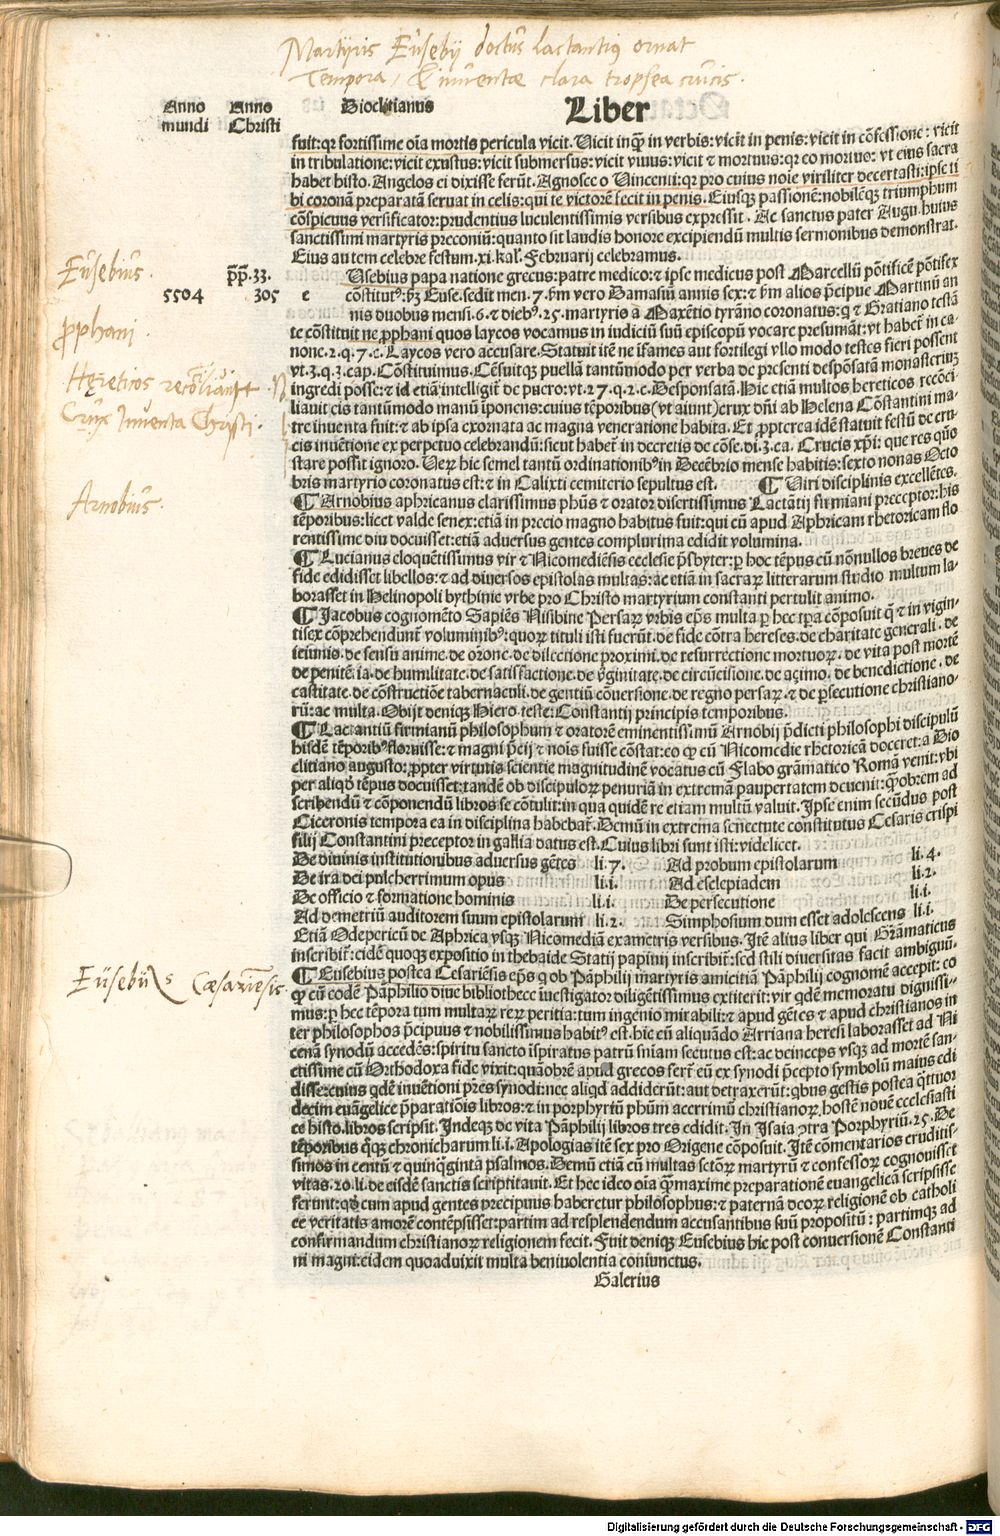 Martÿris Eüsebÿ doctus lactantiꝯ ornat
Tempora, & inuentæ clara trophea crucis.
Anno Anno Dioclitianus Liber
mundi Christi
fuit: qꝛ fortissime oīa mortis pericula vicit. Uicit inqꝫ in verbis: vicit in penis: vicit in cōfessione: vicit
in tribulatione: vicit exustus: vicit submersus: vicit viuus: vicit ⁊ mortuus: qꝛ eo mortuo: vt eius sacra
habet histo. Angelos ei dixisse ferūt. Agnosce o Uincenti: qꝛ pro cuius noīe viriliter decertasti: ipse ti
bi coronā preparatā seruat in celis: qui te victorē fecit in penis. Eiusqꝫ passionē: nobilēqꝫ triumphum
cōspicuus versificator: prudentius luculentissimis versibus expressit. Ac sanctus pater Augu. huius
sanctissimi martyris preconiū: quanto sit laudis honore excipiendū multis sermonibus demonstrat.
Eius autem celebre festum .xi. kal. Februarij celebramus.
Eüsebius. p̄p̄. 33. Usebius papa natione grecus: patre medico: ⁊ ipse medicus post Marcellū pōtificē pōtifex
5504 305 e cōstitutꝰ: hꝫ Euse. sedit men. 7. ṽm vero Damasū annis sex: ⁊ ṽm alios p̄cipue Martinū an
nis duobus mensi. 6. ⁊ diebꝰ. 25. martyris a Maxētio tyrāno coronatus: q̄ ⁊ Gratiano testā
prophani. te cōstituit ne prophani quos laycos vocamus in iudiciū suū episcopū vocare presumāt: vt habet̄ in ca
none. 2. q. 7. c. Laycos vero accusare. Statuit itē ne ifames aut fortilegi vllo modo testes fieri possent
vt. 3. q. 3. cap. Cōstituimus. Cēsuitqꝫ puellā tantūmodo per verba de presenti despōsatā monasteriuꝫ
Hęreticos reconciliauit ingredi posse: ⁊ id etiā intelligit̄ de puero: vt. 27. q. 2. c. Desponsatā. Hic etiā multos hereticos recōci
Crux Inuenta Christi. liauit eis tantūmodo manū iponens: cuius tēporibus (vt aiunt) crux dn̄i ab Helena Cōstantini ma
tre inuenta fuit: ⁊ ab ipsa exornata ac magna veneratione habita. Et ꝓpterea idē statuit festū de cru
cis inuētione ex perpetuo celebrandū: sicut habet̄ in decretis de cōse. di. 3. ca. Crucis xp̄i: que res quō
stare possit ignoro. Ueꝝ hic semel tantū ordinationibꝰ in Decēbrio mense habitis: sexto nonas Octo
bris martyrio coronatus est: ⁊ in Calixti cemiterio sepultus est. ¶ Uiri disciplinis excellētes.
Arnobius. ¶ Arnobius aphricanus clarissimus phūs ⁊ orator disertissimus Lactātij firmiani preceptor: his
tēporibus: licet valde senex: etiā in precio magno habitus fuit: qui cū apud Aphricam rhetoricam flo
rentissime diu docuisset: etiā aduersus gentes complurima edidit volumina.
¶ Lucianus eloquētissimus vir ⁊ Nicomediēsis ecclesie p̄sbyter: ꝑ hoc tēpus cū nōnullos breues de
fide edidisset libellos: ⁊ ad diuersos epistolas multas: ac etiā in sacraꝝ litterarum studio multum la-
borasset in Helinopoli bythinie vrbe pro Christo martyrium constanti pertulit animo.
¶ Jacobus cognomēto Sapiēs Nisibine Persaꝝ vrbis ep̄s multa ꝑ hec tꝑa cōposuit q̄ ⁊ in vigin-
tisex cōprehendunt̄ voluminibꝰ: quoꝝ tituli isti fuerūt. de fide cōtra hereses. de charitate generali. de
ieiunis. de sensu anime. de oꝛone. de dilectione proximi. de resurrectione mortuoꝝ. de vita post mortē
de penitētia. de humilitate. de satisfactione. de v̄ginitate. de circūcisione. de açimo. de benedictione. de
castitate. de cōstructiōe tabernaculi. de gentiū cōuersione. de regno persaꝝ. ⁊ de ꝑsecutione christiano-
rū: ac multa. Obijt deniqꝫ Hiero. teste: Constantij principis temporibus.
¶ Lactantiū firmianū philosophum ⁊ oratorē eminentissimū Arnobij p̄dicti philosophi discipulū
hisdē tēporibꝰ floruisse: ⁊ magni p̄cij ⁊ noīs fuisse cōstat: eo ꝙ cū Nicomedie rhetoricā doceret: a Dio
clitiano augusto: ꝓpter virtutis scientie magnitudinē vocatus cū Flabo grāmatico Romā venit: vbi
per aliqd̄ tēpus docuisset: tandē ob discipuloꝝ penuriā in extremā paupertatem deuenit: q̄obrem ad
scribendū ⁊ cōponendū libros se cōtulit: in qua quidē re etiam multū valuit. Ipse enim secūdus post
Ciceronis tempora ea in disciplina habebat̄. Demū in extrema senectute constitutus Cesaris crispi
filij Constantini preceptor in gallia datus est. Cuius libri sunt isti: videlicet.
De diuinis institutionibus aduersus gētes li. 7. Ad probum epistolarum li. 4.
De ira dei pulcherrimum opus li. i. Ad esclepiadem li. 2.
De officio ⁊ formatione hominis li. i. De persecutione li. i.
Ad demetriū auditorem suum epistolarum li. 2. Simphosium dum esset adolescens li. i.
Etiā Odepericū de Aphrica vsqꝫ Nicomediā exametris versibus. Itē alius liber qui Grāmaticus
inscribit̄: eidē quoqꝫ expositio in thebaide Statij papinij inscribit̄: sed stili diuersitas facit ambiguū.
Eüsebiüs Cæsariēsis. ¶ Eusebius postea Cesariēsis ep̄s q ob Pāphilij martyris amicitiā Pāphilij cognomē accepit: eo
ꝙ cū eodē Pāphilio diue bibliothece iuestigator diligētissimus extiterit: vir qdē memoratu dignissi-
mus: ꝑ hec tēpora tum multaꝝ reꝝ peritia: tum ingenio mirabili: ⁊ apud gētes ⁊ apud christianos in
ter philosophos p̄cipuus ⁊ nobilissimus habitꝰ est. hic cū aliquādo Arriana heresi laborasset ad Ni
cenā synodū accedēs: spiritu sancto ispiratus patrū sn̄iam secutus est: ac deinceps vsqꝫ ad mortē san-
ctissime cū Orthodoxa fide vixit: quāobrē apud grecos fert̄ eū ex synodi p̄cepto symbolū maius edi
disse: cuius qdē inuētioni pr̄es synodi: nec aliqd addiderūt: aut detraxerūt: qbus gestis postea q̄ttuor
decim euāgelice p̄paratiōis libros: ⁊ in porphyriū phūm acerrimū christianoꝝ hostē nouē ecclesiasti
ce histo. libros scripsit. Indeqꝫ de vita Pāphilij libros tres edidit. In Isaia ꝯtra Porphyriū. 25. De
tēporibus q̄qꝫ chronicharum li. i. Apologias itē sex pro Origene cōposuit. Itē cōmentarios eruditis-
simos in centū ⁊ quinq̄gintā psalmos. Demū etiā cū multas sctōꝝ martyrū ⁊ confessoꝝ cognouisset
vitas. 20. li. de eisdē sanctis scriptitauit. Et hec ideo oīa q̄maxime preparationē euangelicā scripsisse
ferunt: qd̓ cum apud gentes precipuus haberetur philosophus: ⁊ paternā deoꝝ religionē ob catholi
ce veritatis amorē contēpsisset: partim ad resplendendum accusantibus suū propositū: partimqꝫ ad
confirmandum christianoꝝ religionem fecit. Fuit deniqꝫ Eusebius hic post conuersionē Constanti
ni magni: eidem quoaduixit multa beniuolentia coniunctus.
Galerius
Digitalisierung gefördert durch die Deutsche Forschungsgemeinschaft - DFG